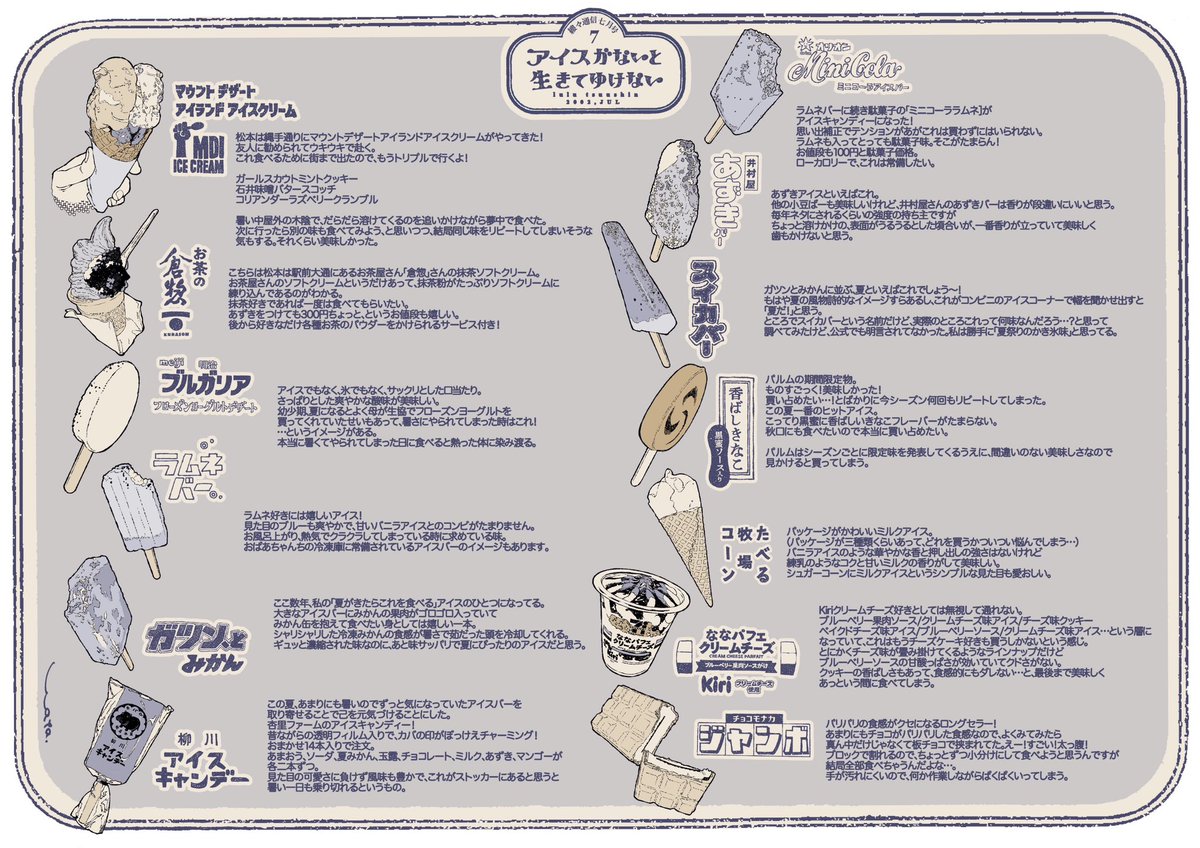 縷々通信 七月号
7
アイスがないと
生きてゆけない
lulu tsuushin
2003.JUL
マウント デザート
アイランド アイスクリーム
MDI
ICE CREAM
松本は縄手通りにマウントデザートアイランドアイスクリームがやってきた!
友人に勧められてウキウキで赴く。
これ食べるために街まで出たので、もうトリプルで行くよ!
ガールスカウトミントクッキー
石井味噌バタースコッチ
コリアンダーラズベリークランブル
暑い中屋外の木陰で、だらだら溶けてくるのを追いかけながら夢中で食べた。
次に行ったら別の味も食べてみよう、と思いつつ、結局同じ味をリピートしてしまいそうな
気もする。それくらい美味しかった。
お茶の
倉惣
KURASOH
こちらは松本は駅前大通にあるお茶屋さん「倉惣」さんの抹茶ソフトクリーム。
お茶屋さんのソフトクリームというだけあって、抹茶粉がたっぷりソフトクリームに
練り込んであるのがわかる。
抹茶好きであれば一度は食べてもらいたい。
あずきをつけても300円ちょっと、というお値段も嬉しい。
後から好きなだけ各種お茶のパウダーをかけられるサービス付き!
meiji 明治
ブルガリア
フローズンヨーグルトデザート
アイスでもなく、氷でもなく、サックリとした口当たり。
さっぱりとした爽やかな酸味が美味しい。
幼少期、夏になるとよく母が生協でフローズンヨーグルトを
買ってくれていたせいもあって、暑さにやられてしまった時はこれ!
…というイメージがある。
本当に暑くてやられてしまった日に食べると熱った体に染み渡る。
ラムネ
バー。
ラムネ好きには嬉しいアイス!
見た目のブルーも爽やかで、甘いバニラアイスとのコンビがたまりません。
お風呂上がり、熱気でクラクラしてしまっている時に求めている味。
おばあちゃんちの冷凍庫に常備されているアイスバーのイメージもあります。
ガツン、と
みかん
ここ数年、私の「夏がきたらこれを食べる」アイスのひとつになってる。
大きなアイスバーにみかんの果肉がゴロゴロ入っていて
みかん缶を抱えて食べたい身としては嬉しい一本。
シャリシャリした冷凍みかんの食感が暑さで茹だった頭を冷却してくれる。
ギュッと濃縮された味なのに、あと味サッパリで夏にぴったりのアイスだと思う。
柳川
アイス
キャンデー
この夏、あまりにも暑いのでずっと気になっていたアイスバーを
取り寄せることで己を元気づけることにした。
杏里ファームのアイスキャンディー!
昔ながらの透明フィルム入りで、カバの印がぽっけえチャーミング!
おまかせ14本入りで注文。
あまおう、ソーダ、夏みかん、玉露、チョコレート、ミルク、あずき、マンゴーが
各二本ずつ。
見た目の可愛さに負けず風味も豊かで、これがストッカーにあると思うと
暑い一日も乗り切れるというもの。
オリオン
MiniCola
ミニコーラアイスバー
ラムネバーに続き駄菓子の「ミニコーララムネ]が
アイスキャンディーになった!
思い出補正でテンションがあがこれは買わずにはいられない。
ラムネも入ってとっても駄菓子味。そこがたまらん!
お値段も100円と駄菓子価格。
ローカロリーで、これは常備したい。
井村屋
あずきバー
あずきアイスといえばこれ。
他の小豆ばーも美味しいけれど、井村屋さんのあずきバーは香りが段違いにいいと思う。
毎年ネタにされるくらいの強度の持ち主ですが
ちょっと溶けかけの、表面がうるうるとした頃合いが、一番香りが立っていて美味しく
歯もかけないと思う。
スイカバー
ガツンとみかんに並ぶ、夏といえばこれでしょう〜!
もはや夏の風物詩的なイメージすらあるし、これがコンビニのアイスコーナーで幅を聞かせ出すと
「夏だ!」と思う。
ところでスイカバーという名前だけど、実際のところこれって何味なんだろう…?と思って
調べてみたけど、公式でも明言されてなかった。私は勝手に「夏祭りのかき氷味」と思ってる。
香ばしきなこ
黒蜜ソース入り
パルムの期間限定物。
ものすごっく!美味しかった!
買い占めたい…!とばかりに今シーズン何回もリピートしてしまった。
この夏一番のヒットアイス。
こってり黒蜜に香ばしいきなこフレーバーがたまらない。
秋口にも食べたいので本当に買い占めたい。
パルムはシーズンごとに限定味を発表してくるうえに、間違いのない美味しさなので
見かけると買ってしまう。
たべる
牧場
コーン
パッケージがかわいいミルクアイス。
(パッケージが三種類くらいあって、どれを買うかついつい悩んでしまう…)
バニラアイスのような華やかな香と押し出しの強さはないけれど
練乳のようなコクと甘いミルクの香りがして美味しい。
シュガーコーンにミルクアイスというシンプルな見た目も愛おしい。
ななパフェ
クリームチーズ
CREAM CHEESE PARFAIT
ブルーベリー果肉ソースがけ
Kiri クリームチーズ
使用
Kiriクリームチーズ好きとしては無視して通れない。
ブルーベリー果肉ソース/クリームチーズ味アイス/チーズ味クッキー
ベイクドチーズ味アイス/ブルーベリーソース/クリームチーズ味アイス…という層に
なっていて、これはもうチーズケーキ好きも買うしかないという感じ。
とにかくチーズ味が畳み掛けてくるようなラインナップだけど
ブルーベリーソースの甘酸っぱさが効いていてクドさがない。
クッキーの香ばしさもあって、食感的にもダレない…と、最後まで美味しく
あっという間に食べてしまう。
チョコモナカ
ジャンボ
パリパリの食感がクセになるロングセラー!
あまりにもチョコがパリパリした食感なので、よくみてみたら
真ん中だけじゃなくて板チョコで挟まれてた。えー!すごい!太っ腹!
ブロックで割れるので、ちょっとずつ小分けにして食べようと思うんですが
結局全部食べちゃうんだよな…。
手が汚れにくいので、何か作業しながらぱくぱくいってしまう。